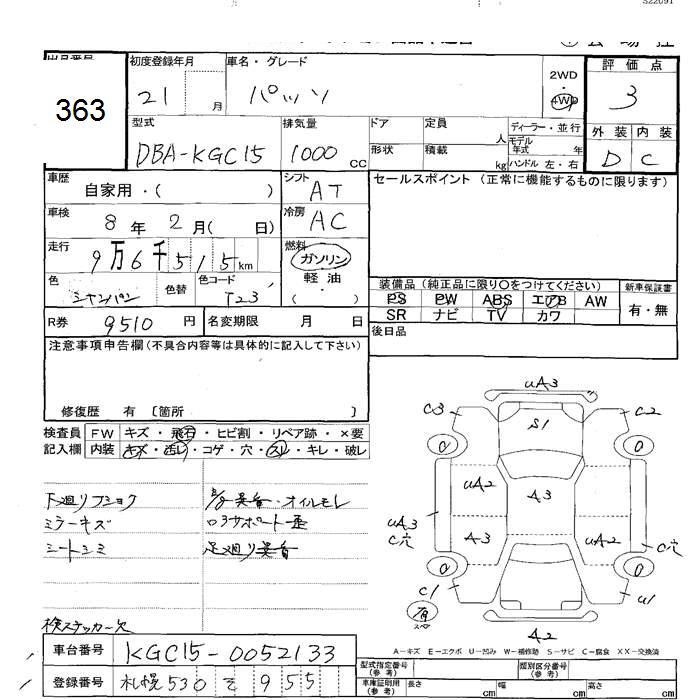 S22091
363
初度登録年月 車名・グレード 評価点
21 月 パッソ 2WD 4WD 3
型式 排気量 ドア 定員 人 ディーラー・並行 外装 内装
モデル年式 年
DBA-KGC15 1000 CC 形状 積載 kg ハンドル 左・右 D C
車歴 自家用・( ) シフト AT セールスポイント (正常に機能するものに限ります)
車検 8年 2月( 日) 冷房 AC
走行 9万6千515km 燃料 ガソリン
軽油
色 シャンパン 色替 色コード T23 ・( )
装備品 (純正品に限り○をつけてください) 新車保証書
PS PW ABS エアB AW 有・無
SR ナビ TV カワ
R券 9510円 名変期限 月 日 後日品
注意事項申告欄 (不具合内容等は具体的に記入して下さい)
修復歴 有 [箇所 ]
検査員 FW キズ・飛石・ヒビ割・リペア跡・×要
記入欄 内装 キズ・汚レ・コゲ・穴・スレ・キレ・破レ
下廻りフショク オイルモレ
ミラーキズ
シートシミ 足廻り異音
検ステッカー欠
UA3
C3 C2
S1
UA2
A3
UA3
C穴
A3 UA2
C穴
C1 U1
有
スペア
A2
A-キズ E-エクボ U-凹み W-補修跡 S-サビ C-腐食 XX-交換済
車台番号 KGC15-0052133
型式指定番号 (参考) 類別区分番号 (参考)
登録番号 札幌 530 そ 955
車庫証明用 (参考) 長さ cm 幅 cm 高さ cm